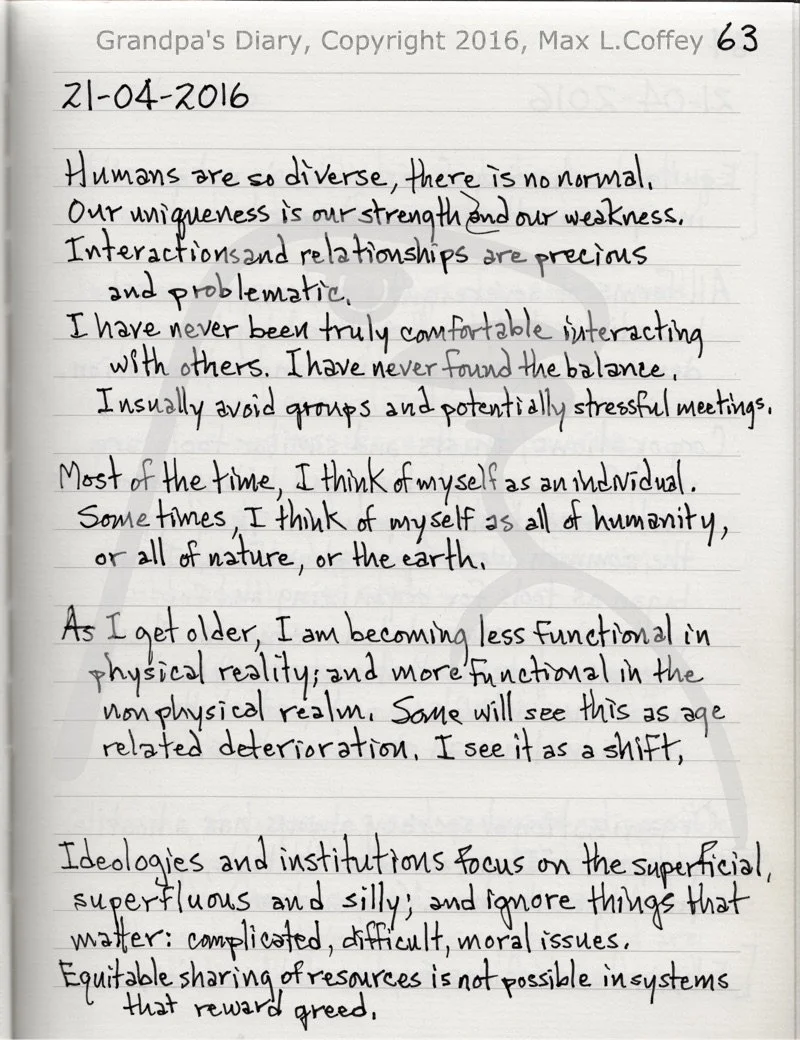 Grandpa's Diary, Copyright 2016, Max L.Coffey 63
21-04-2016
Humans are so diverse, there is no normal.
Our uniqueness is our strength and our weakness.
Interactions and relationships are precious
and problematic.
I have never been truly comfortable interacting
with others. I have never found the balance.
I usually avoid groups and potentially stressful meetings.
Most of the time, I think of myself as an individual.
Sometimes, I think of myself as all of humanity,
or all of nature, or the earth.
As I get older, I am becoming less functional in
physical reality; and more functional in the
nonphysical realm. Some will see this as age
related deterioration. I see it as a shift,
Ideologies and institutions focus on the superficial,
superfluous and silly; and ignore things that
matter: complicated, difficult, moral issues.
Equitable sharing of resources is not possible in systems
that reward greed.